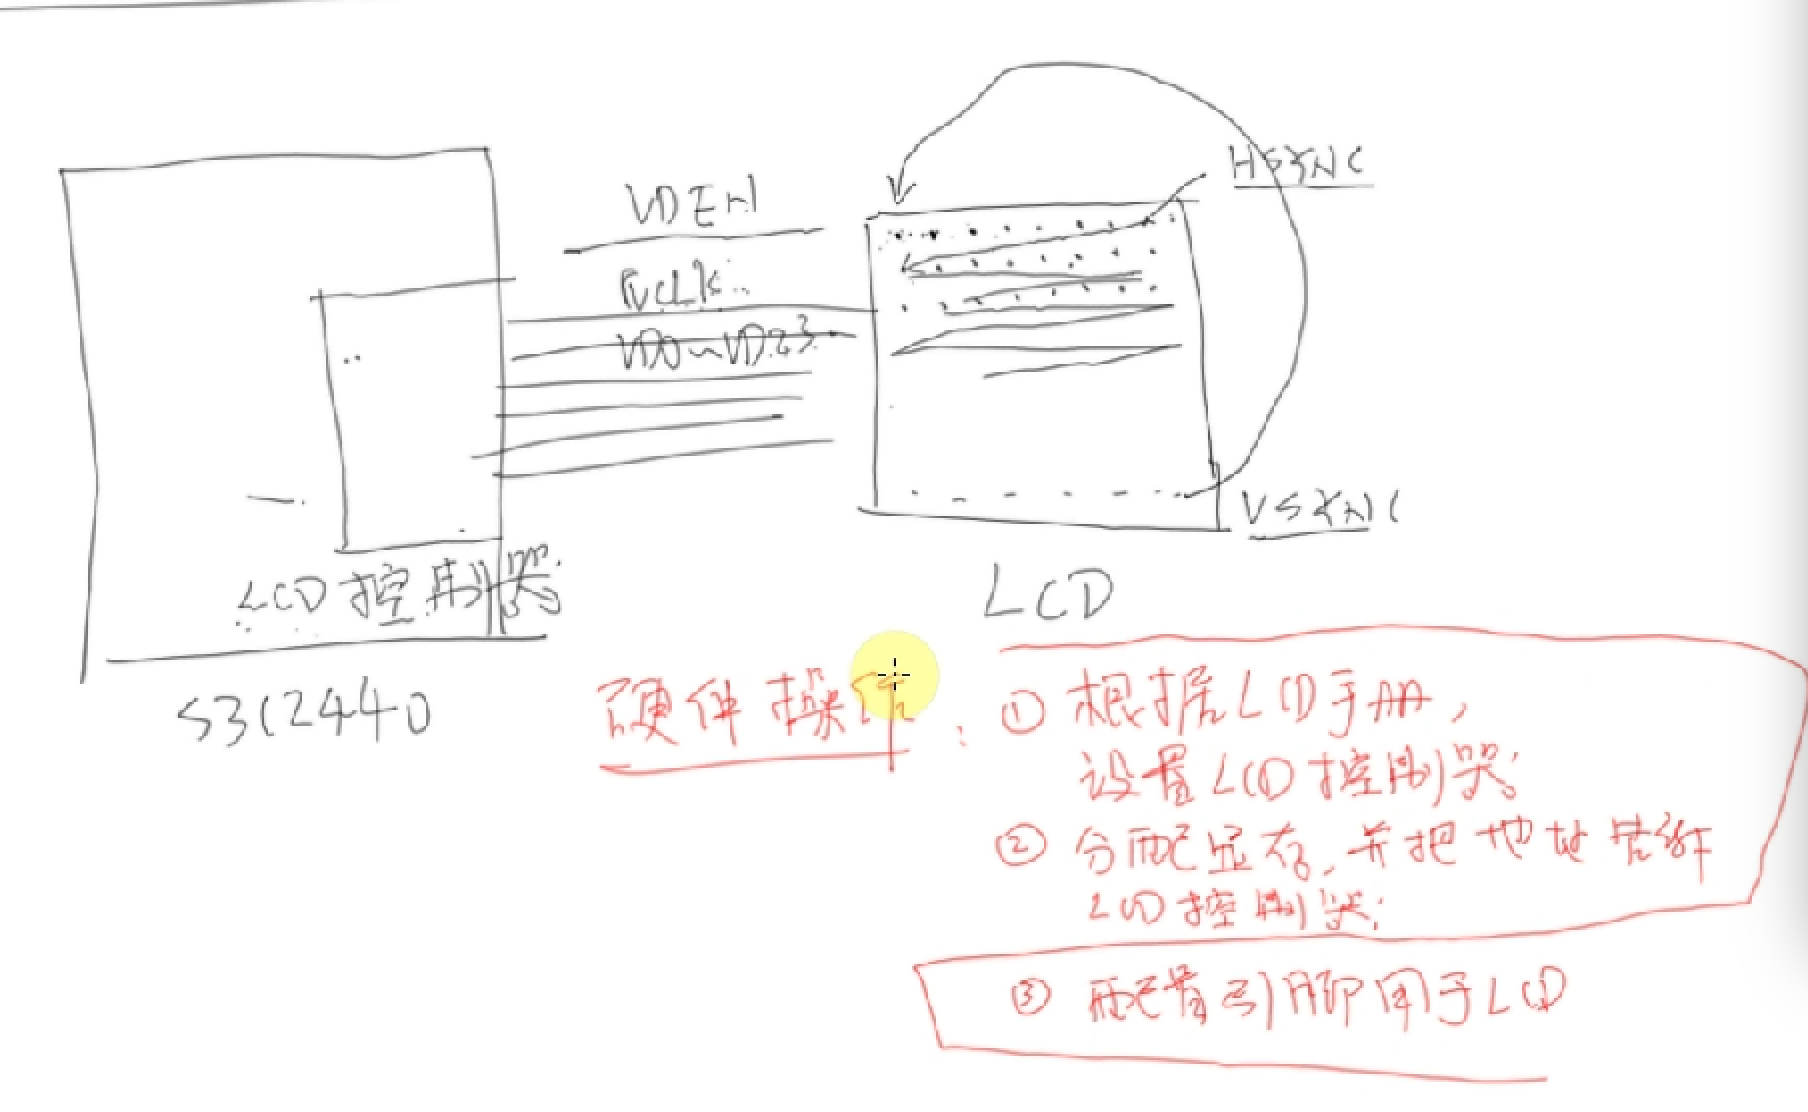 VDEN
HSYNC
VCLK
VD0~VD23
VSYNC
LCD控制器
LCD
S3C2440
硬件操作:
① 根据LCD手册,
设置LCD控制器;
② 分配显存,并把地址告诉
LCD控制器;
③ 配置引脚用于LCD